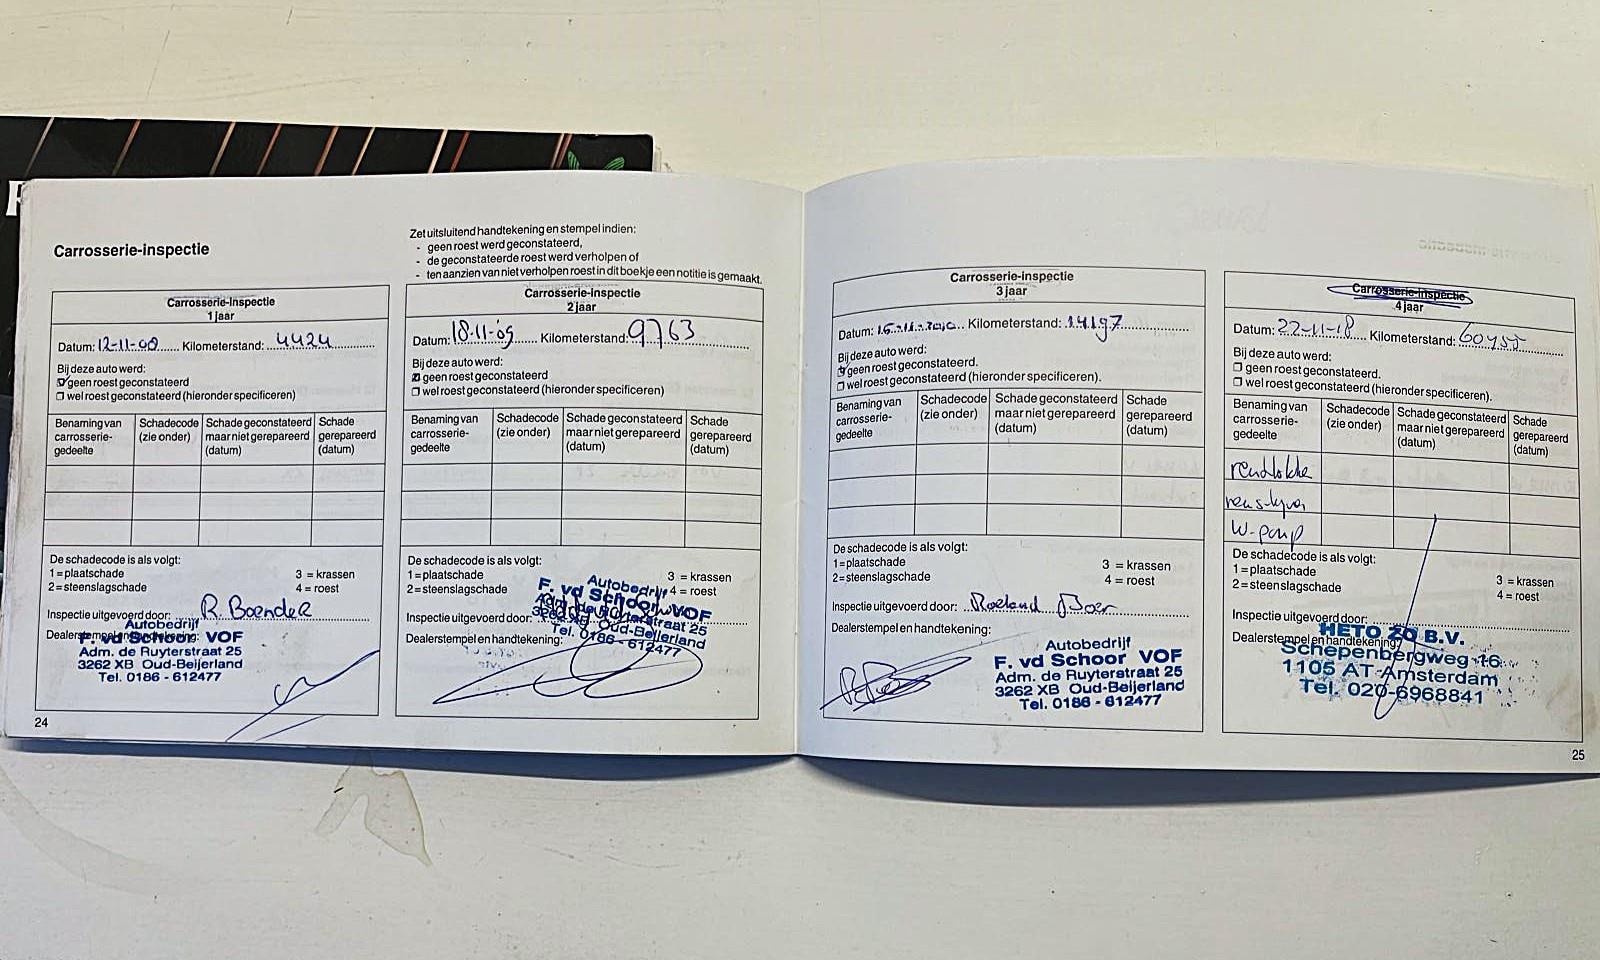 Carrosserie-inspectie
Zet uitsluitend handtekening en stempel indien:
- geen roest werd geconstateerd,
- de geconstateerde roest werd verholpen of
- ten aanzien van niet verholpen roest in dit boekje een notitie is gemaakt.
Carrosserie-inspectie
1 jaar
Datum: 12-11-08 Kilometerstand: 4424
Bij deze auto werd:
geen roest geconstateerd
wel roest geconstateerd (hieronder specificeren)
Benaming van carrosserie-gedeelte
Schadecode (zie onder)
Schade geconstateerd maar niet gerepareerd (datum)
Schade gerepareerd (datum)
De schadecode is als volgt:
1 = plaatschade 3 = krassen
2 = steenslagschade 4 = roest
Inspectie uitgevoerd door: R. Boender
Dealerstempel en handtekening:
Autobedrijf
F. vd Schoor VOF
Adm. de Ruyterstraat 25
3262 XB Oud-Beijerland
Tel. 0186 - 612477
24
Carrosserie-inspectie
2 jaar
Datum: 18-11-'09 Kilometerstand: 9763
Bij deze auto werd:
geen roest geconstateerd
wel roest geconstateerd (hieronder specificeren)
Benaming van carrosserie-gedeelte
Schadecode (zie onder)
Schade geconstateerd maar niet gerepareerd (datum)
Schade gerepareerd (datum)
De schadecode is als volgt:
1 = plaatschade 3 = krassen
2 = steenslagschade 4 = roest
Inspectie uitgevoerd door:
Dealerstempel en handtekening:
Autobedrijf
F. vd Schoor VOF
Adm. de Ruyterstraat 25
3262 XB Oud-Beijerland
Tel. 0186 - 612477
Carrosserie-inspectie
3 jaar
Datum: 15-11-2010 Kilometerstand: 14197
Bij deze auto werd:
geen roest geconstateerd.
wel roest geconstateerd (hieronder specificeren).
Benaming van carrosserie-gedeelte
Schadecode (zie onder)
Schade geconstateerd maar niet gerepareerd (datum)
Schade gerepareerd (datum)
De schadecode is als volgt:
1 = plaatschade 3 = krassen
2 = steenslagschade 4 = roest
Inspectie uitgevoerd door: Roeland Boer
Dealerstempel en handtekening:
Autobedrijf
F. vd Schoor VOF
Adm. de Ruyterstraat 25
3262 XB Oud-Beijerland
Tel. 0186 - 612477
Carrosserie-inspectie
4 jaar
Datum: 22-11-18 Kilometerstand: 60455
Bij deze auto werd:
geen roest geconstateerd.
wel roest geconstateerd (hieronder specificeren).
Benaming van carrosserie-gedeelte
Schadecode (zie onder)
Schade geconstateerd maar niet gerepareerd (datum)
Schade gerepareerd (datum)
W-pomp
De schadecode is als volgt:
1 = plaatschade 3 = krassen
2 = steenslagschade 4 = roest
Inspectie uitgevoerd door:
Dealerstempel en handtekening:
HETO ZO B.V.
Schepenbergweg 16
1105 AT Amsterdam
Tel. 020-6968841
25